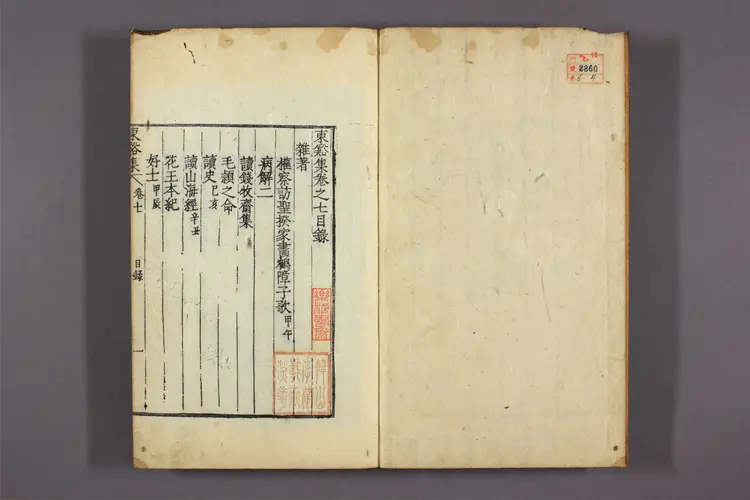 東谿集卷之七目錄
雜著
權察訪聖揆家書鶴障子歌 甲午
病解二
讀錢牧齋集
毛穎之命
讀史 己亥
讀山海經 辛丑
花王本紀
好士 甲辰
東谿集 卷七 目錄 一
2860